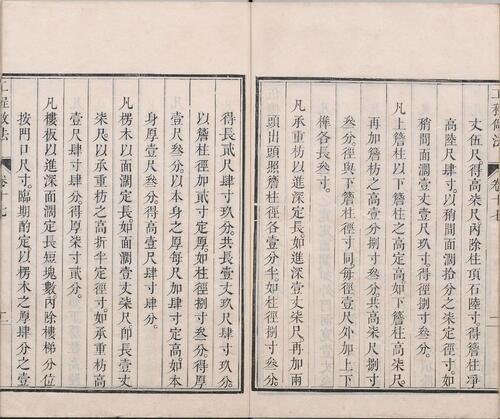 工程做法
卷十七
一
丈伍尺得高柒尺內除柱頂石陸寸得簷柱淨
高陸尺肆寸以稍間面濶拾分之柒定徑寸如
稍間面濶壹丈玖寸得徑捌寸叁分
凡上簷柱以下簷柱定高如下簷柱高柒尺
再加簷枋之高壹分捌寸叁分共高柒尺捌寸
叁分徑與下簷柱徑寸同每徑壹尺外加上下
榫各長叁寸
凡承重枋以進深定長如進深壹丈柒尺再加兩
頭出頭照簷柱徑各壹分半如柱徑捌寸叁分
得長貳尺肆寸玖分共長壹丈玖尺肆寸玖分
以簷柱徑加貳寸定厚如柱徑捌寸叁分得厚
壹尺叁分以本身之厚每尺加肆寸定高如本
身厚壹尺叁分得高壹尺肆寸肆分
凡楞木以面濶定長如面濶壹丈柒尺即長壹丈
柒尺以承重枋之高折半定徑寸如承重枋高
壹尺肆寸肆分得厚柒寸貳分
凡樓板以進深面濶定長短塊數內除樓梯分位
按門口尺寸臨期酌定以楞木之厚肆分之壹
工程做法
卷十七
二